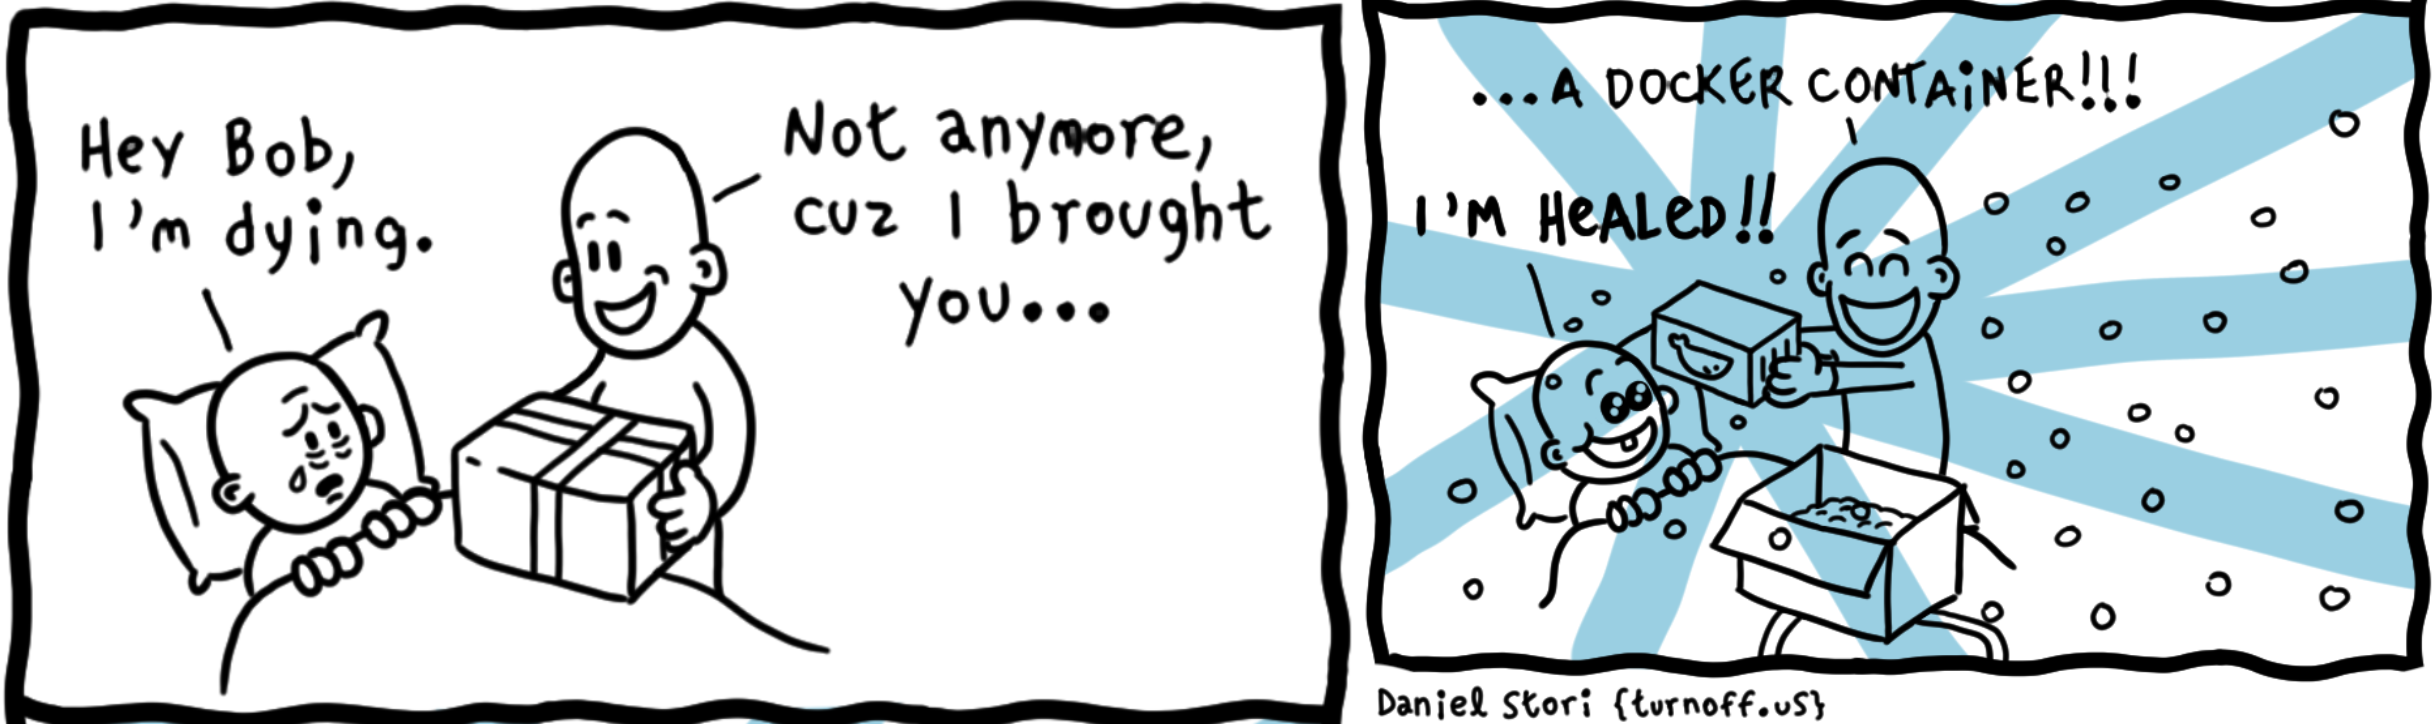 Hey Bob,
I'm dying.
Not anymore,
cuz I brought
you...
...A DOCKER CONTAiNER!!!
I'M HeALeD!!
Daniel Stori {turnoff.us}